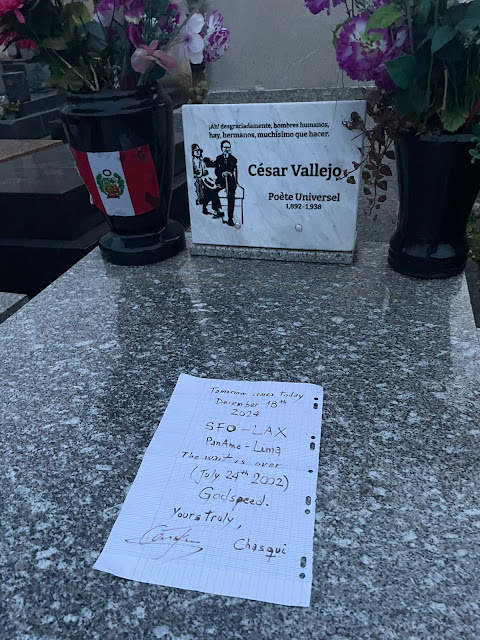 ¡Ah! desgraciadamente, hombres humanos,
hay, hermanos, muchísimo que hacer.
César Vallejo
Poète Universel
1,892 - 1,938
Tomorrow comes Today
December 18th
2024
SFO - LAX
PanAme - Lima
The wait is over
(July 24th 2002)
Godspeed.
Yours truly,
Chasqui